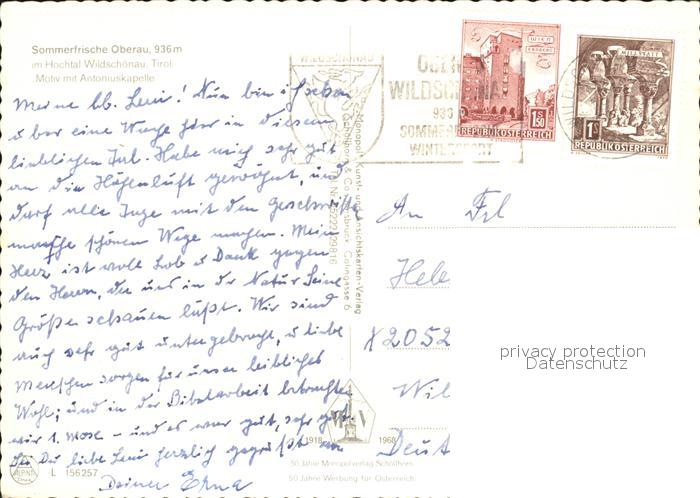 Sommerfrische Oberau, 936 m
im Hochtal Wildschönau, Tirol
Motiv mit Antoniuskapelle
Meine lb. Leni! Nun bin ich schon
über eine Woche hier in diesem
lieblichen Tal. Habe mich sehr gut
an die Höhenluft gewöhnt, und
darf alle Tage mit den Geschwistern
manche schönen Wege machen. Mein
Herz ist voll Lob u Dank gegen
den Herrn, der uns in der Natur Seine
Größe schauen läßt. Wir sind
auch sehr gut untergebracht, u liebe
Menschen sorgen für unser leibliches
Wohl; und in der Bibelarbeit betrachten
wir 1. Mose - und es war gut, sehr gut.
Sei Du liebe Leni herzlich gegrüßt von
Deiner Erna
L 156257
Monopol Kunst- und Ansichtskarten-Verlag
Schöllhorn & Co., Innsbruck, Colingasse 6
1918 1968
50 Jahre Monopolverlag Schöllhorn
50 Jahre Werbung für Österreich
WILDSCHÖNAU
WILDSCHÖNAU
936
SOMMER
WINTERSPORT
WIEN
ERDBERG
S 1.50
REPUBLIK ÖSTERREICH
MILLSTATT
1S
REPUBLIK ÖSTERREICH
An Frl
Hele
X 2052
Wil
Deut
privacy protection
Datenschutz